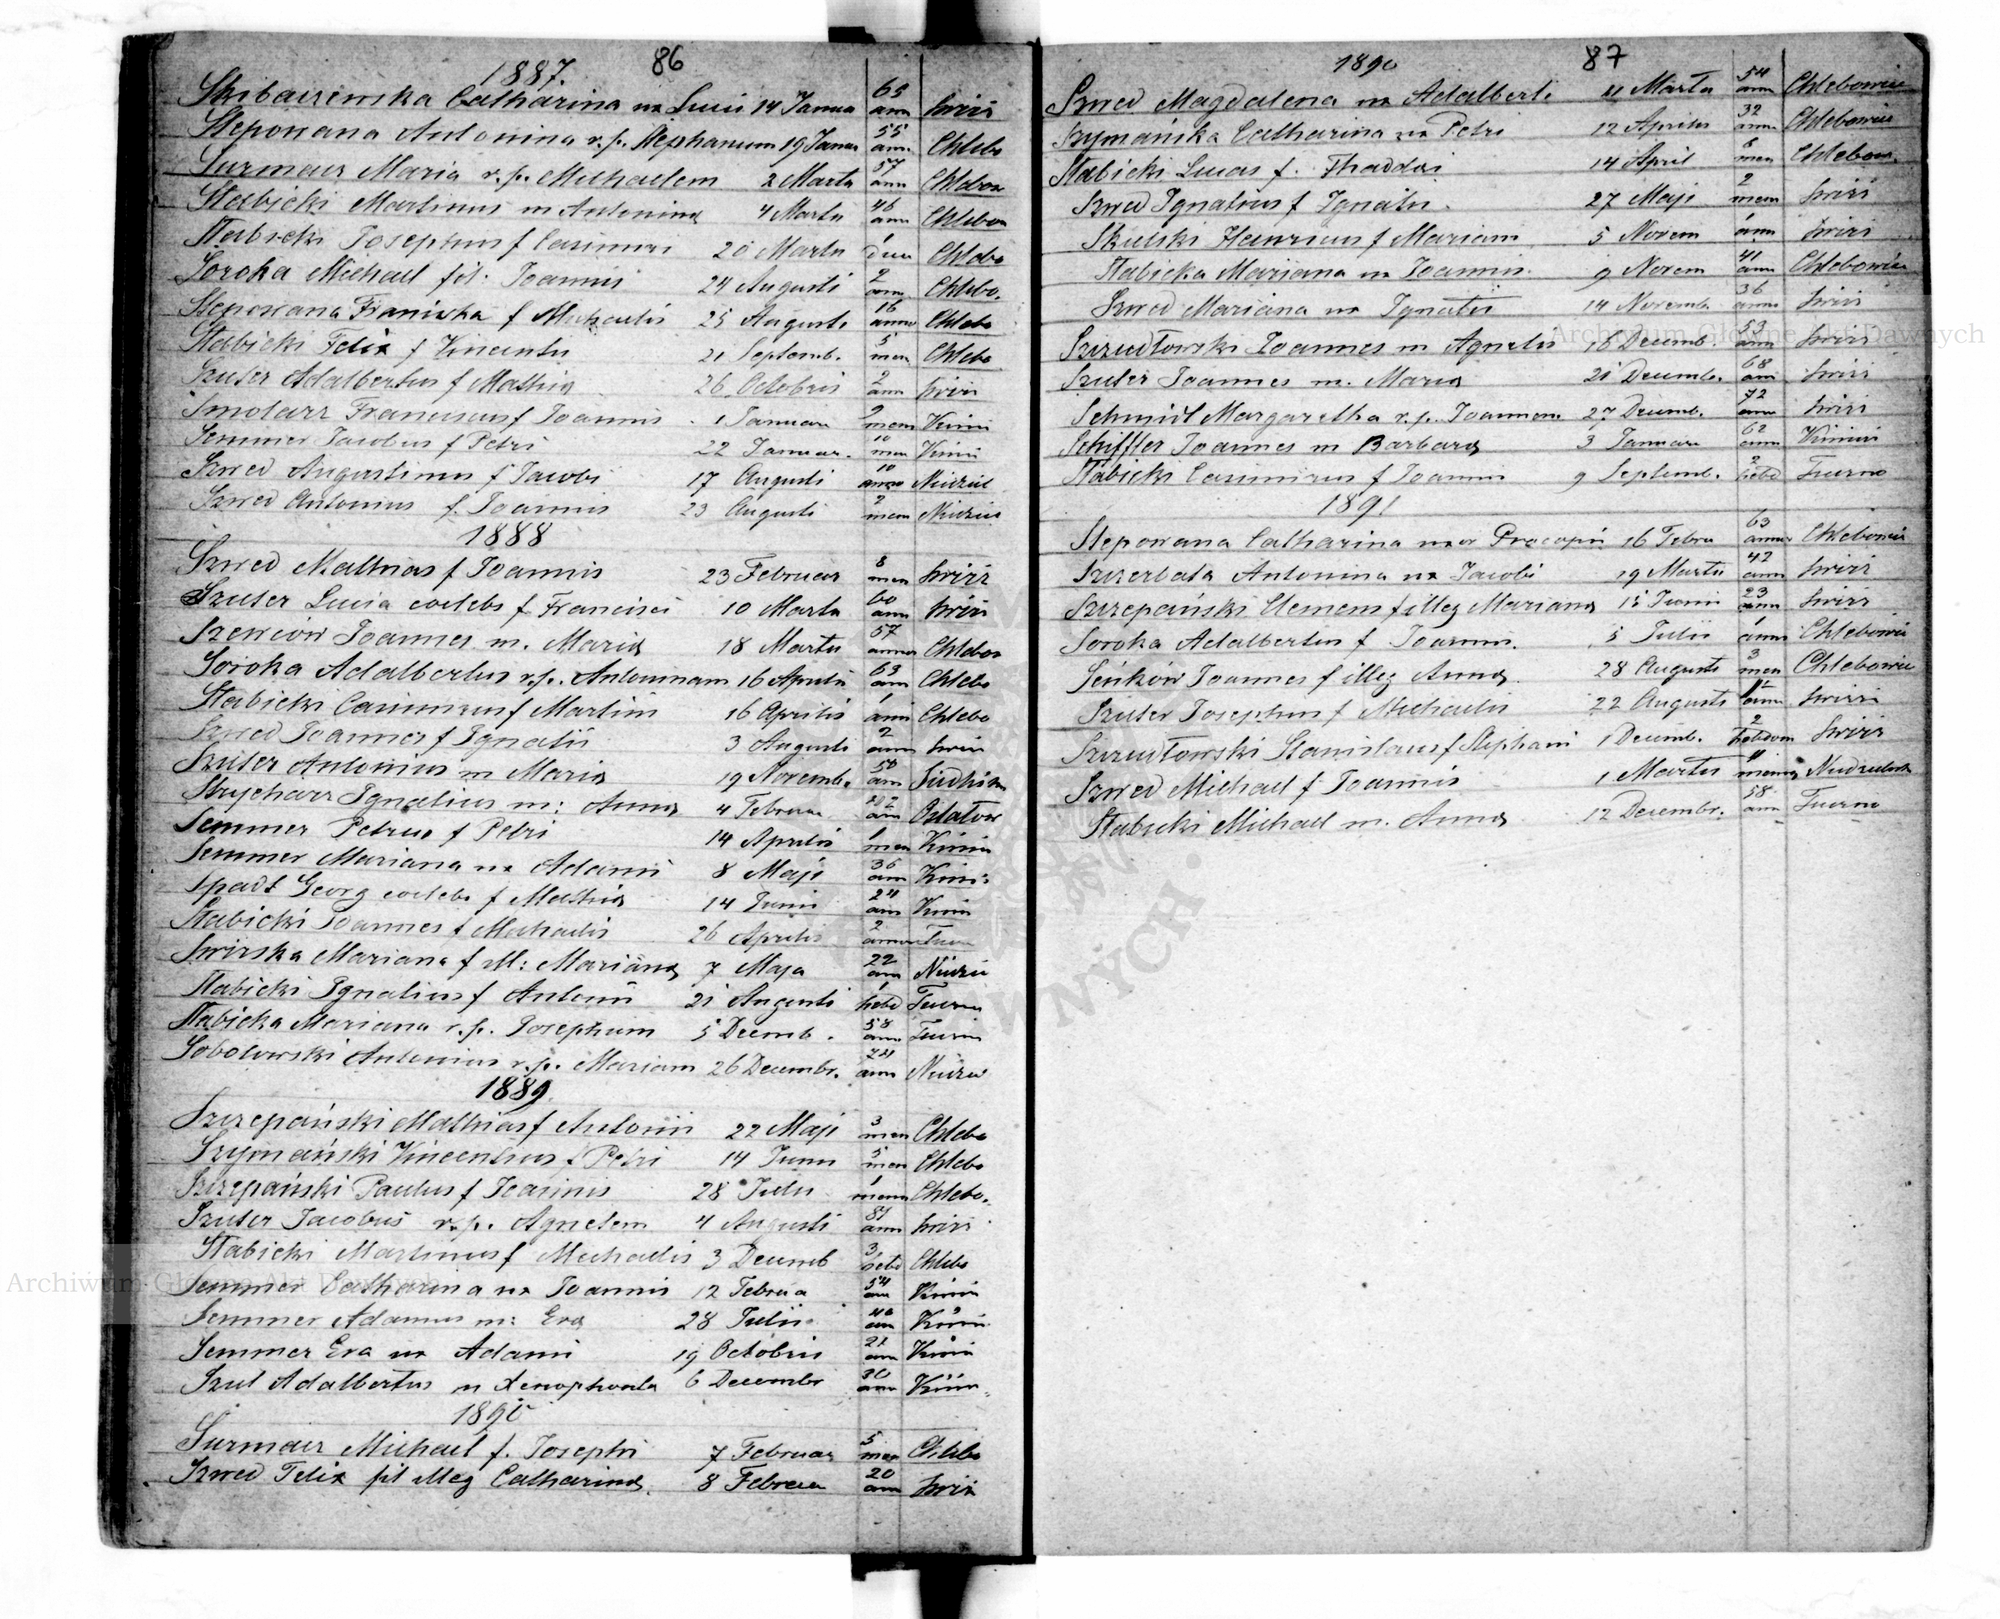 86
1887.
Skibaczewska Catharina ux Lucii 14 Janua 65 ann Swirz
Steponana Antonina r.p. Stephanum 19 Janua 55 ann. Chlebo
Surmacz Maria r.p. Michaelem 2 Martii 57 ann Chlebow
Słabicki Martinus m Antonina 4 Martii 46 ann Chlebow
Słabicki Josephus f Casimiri 20 Martii 1 Chlebo
Soroka Michael fil. Joannis 24 Augusti 2 ann. Chlebo.
Steponana Franiszka f Michaelis 25 Augusti 16 anno Chlebo
Słabicki Felix f Vincentii 21 Septemb. 5 men Chlebo
Szuter Adalbertus f Mathia 26 Octobris 2 ann Swirz
Smolarz Franciscus f Joannis 1 Januar 2 mens Kimir
Semmer Jacobus f Petri 22 Januar. 10 men Kimir
Szwed Augustinus f Jacobi 17 Augusti 10 anno Niedziel
Szwed Antonius f Joannis 23 Augusti 2 mens Niedziel
1888
Szwed Mathias f Joannis 23 Februar 8 men Swirz
Szuter Lucia coelebs f Francisci 10 Martii 60 ann Swirz
Szewciow Joannes m. Maria 18 Martii 57 annor Chlebow
Soroka Adalbertus r.p. Antoninam 16 Aprilis 63 ann Chlebo
Słabicki Casimirus f Martini 16 Aprilis 1 anni Chlebo
Szwed Joannes f Ignatii 3 Augusti 2 ann Swirz
Szuter Antonius m Maria 19 Novemb. 50 ann
Strycharz Ignatius m: Anna 4 Februar ann Ostalow
Semmer Petrus f Petri 14 Aprilis 1 men Kimir
Semmer Mariana ux Adami 8 Maji 36 ann Kimi
Spadt Georg coelebs f Mathia 14 Junii 24 ann Kimir
Słabicki Joannes f Michaelis 26 Aprilis 2 annor
Swirska Mariana f M: Mariana 7 Maja 22 ann Niedzie
Słabicki Ignatius f Antonii 21 Augusti 1 hebd Tuczna
Słabicka Mariana r.p. Josephum 5 Decemb. 58 ann Tuczn
Sobolewski Antonius r.p. Mariam 26 Decembr. 74 ann Niedzie
1889.
Szczepański Mathias f Antonii 22 Maji 3 men Chlebo
Szymański Vincentius f Petri 14 Junii 5 men Chlebo
Szczepański Paulus f Joannis 28 Julii 1 mens Chlebo.
Szuter Jacobus r.p. Agnetem 4 Augusti 84 ann Swirz
Słabicki Martinus f Michaelis 3 Decemb 3 hebd Chlebo
Semmer Catharina ux Joannis 12 Februa 54 ann Kimir
Semmer Adamus m: Eva 28 Julii 40 ann Kimir
Semmer Eva ux Adami 19 Octobris 21 ann Kimir
Szul Adalbertus m Xenophonta 6 Decembr 30 ann Kimir
1890
Surmacz Michael f. Josephi 7 Februar 5 men Chlebo
Szwed Felix fil illeg Catharina. 8 Februar 20 ann Swirz
87
1890
Szwed Magdalena ux Adalberti 11 Martii 54 ann Chlebowice
Szymańska Catharina ux Petri 12 Aprilis 32 anno Chlebowice
Słabicki Lucas f. Thaddai 14 April 8 men Chlebow.
Szwed Ignatius f Ignatii. 27 Maji 2 mens Swirz
Skulski Henricus f Mariani 5 Novem 1 ann Swirz
Słabicka Mariana ux Joannis. 9 Novem 41 ann Chlebowice
Szwed Mariana ux Ignatii 14 Novemb. 36 anno Swirz
Szczudłowski Joannes m Agnetis 16 Decemb. 53 ann Swirz
Szuter Joannes m. Maria 21 Decemb. 68 ann Swirz
Schmidt Margaretha r.p. Joannem 27 Decemb. 72 ann Swirz
Schiffler Joannes m Barbara 3 Januar 62 ann Kimirz
Słabicki Casimirus f Joannis 9 Septemb. 2 hebd Tuczno
1891
Steponana Catharina uxor Procopii 16 Febru 63 annor Chlebowice
Szczerbata Antonina ux Jacobi 19 Martii 42 ann Swirz
Szczepański Clemens f illeg Mariana 15 Junii 23 ann Swirz
Soroka Adalbertus f Joannis. 5 Julii 1 anni Chlebowice
Seńków Joannes f illeg Anna. 28 Augusti 3 men Chlebowice
Szuter Josephus f Michaelis 22 Augusti ann Swirz
Szczudłowski Stanislaus f Stephani 1 Decemb. 2 hebdom Swirz
Szwed Michael f Joannis 1 Martii 11 mens
Słabicki Michael m. Anna 12 Decembr. 58 ann Tuczno
Archiwum Główne Akt Dawnych
Archiwum Główne Akt Dawnych
NYCH.